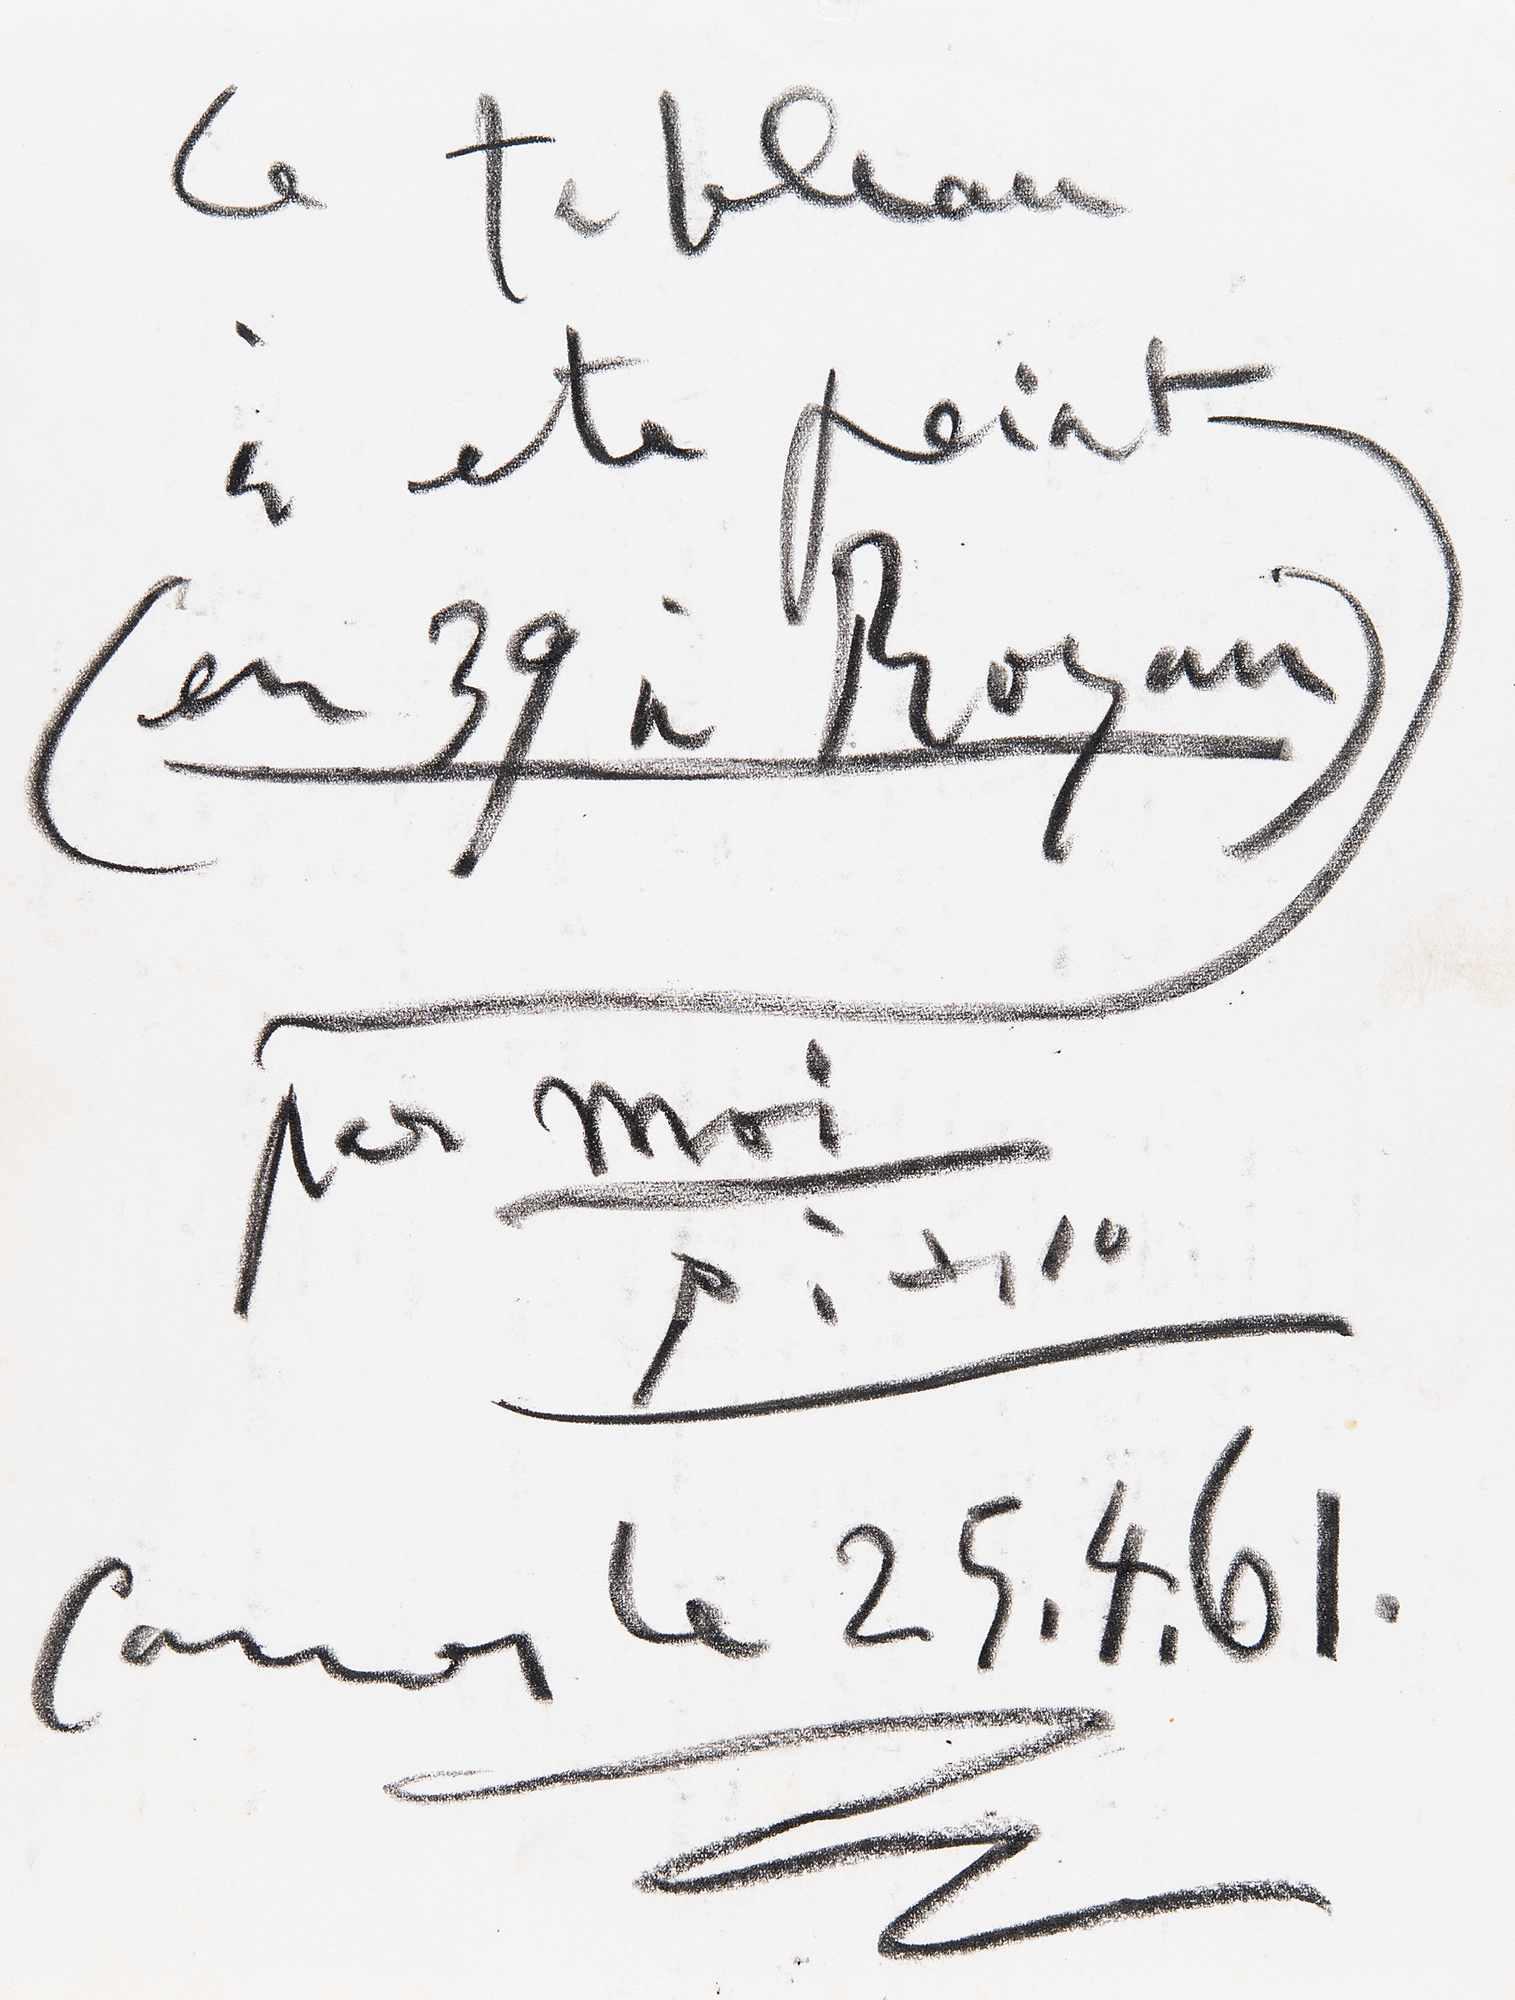 Ce tableau
à ete peint
(en 39 à Royan)
par moi
Picasso
Cannes le 25.4.61.